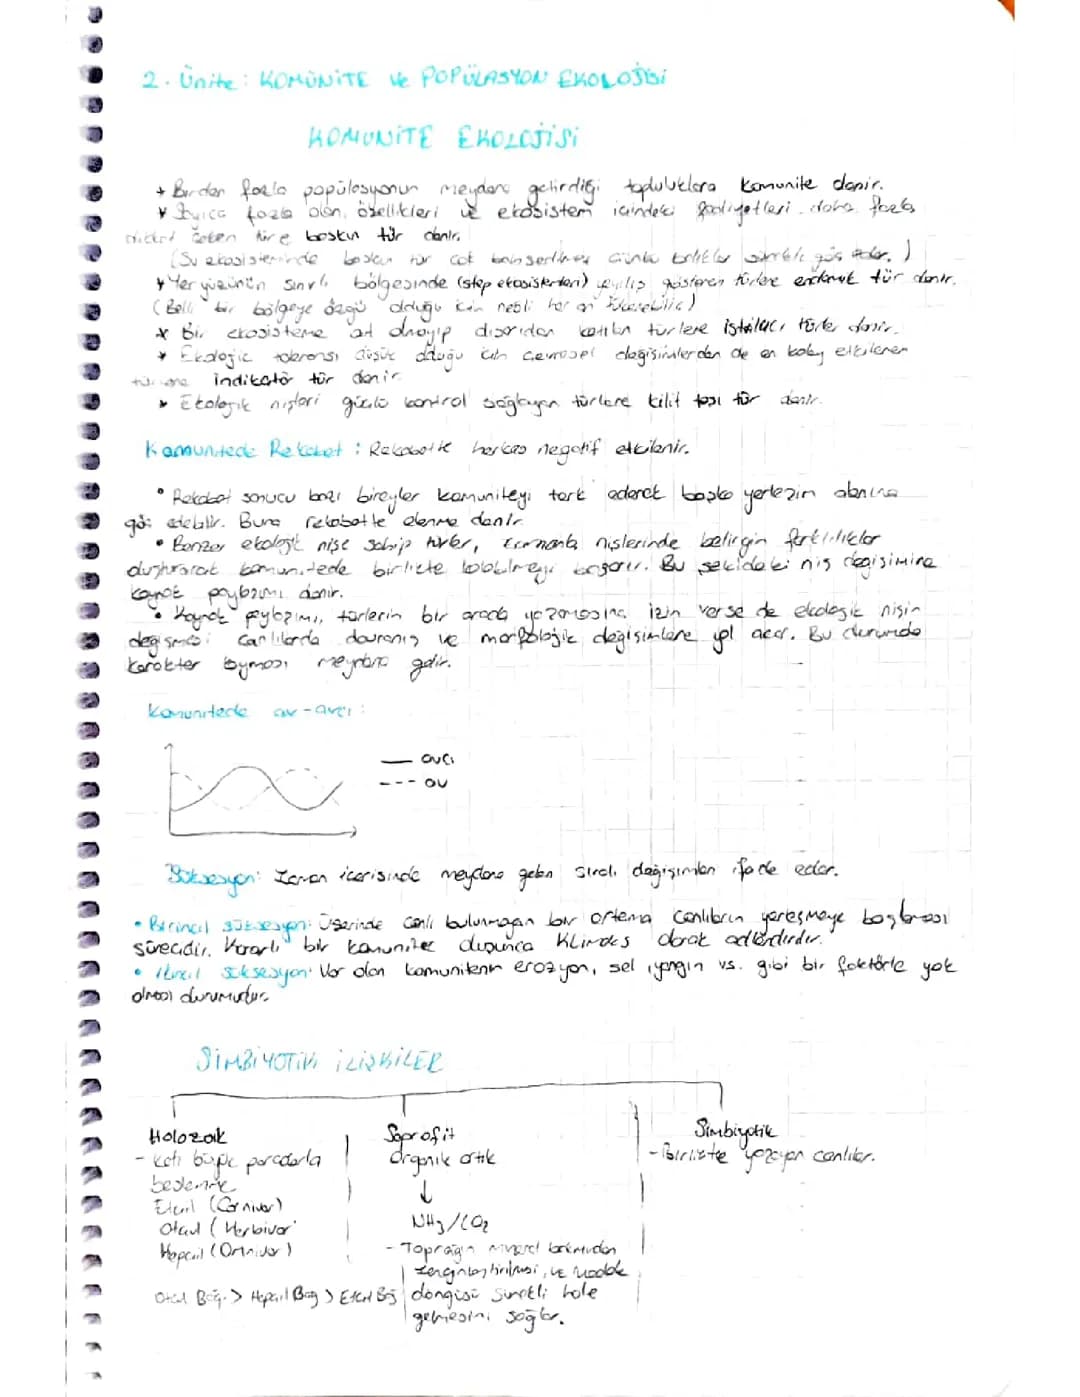 2. Ünite: KOMÜNİTE ve POPÜLASYON EKOLOJİSİ
KOMUNİTE EKOLOJİSİ
+ Birden fazla popülasyonun meydana getirdiği topluluklara komunite denir.
* Sayıca fazla olan, özellikleri ve ekosistem içindeki faaliyetleri daha fazla
dikkat çeken türe baskın tür denir.
(Su ekosisteminde baskın tür çok çünkü birlikler sürekli göç eder.)
* Yer yüzünün sınırlı bölgesinde (step ekosistemleri) yayılış gösteren türlere endemik tür denir.
(Belli bir bölgeye özgü olduğu için nesli her an tükenebilir)
* Bir ekosisteme ait olmayıp dışarıdan katılan türlere istilacı türler denir.
* Ekolojik toleransı düşük olduğu için çevresel değişimlerden de en kolay etkilenen
türlere indikatör tür denir.
* Ekolojik nişleri güçlü kontrol sağlayan türlere kilit taşı tür denir.
Komunitede Rekabet : Rekabette herkes negatif etkilenir.
• Rekabet sonucu bazı bireyler komuniteyi terk ederek başka yerleşim alanına
göç edebilir. Buna rekabette elenme denir.
• Benzer ekolojik nişe sahip türler, zamanla nişlerinde belirgin farklılıklar
oluşturarak komunitede birlikte kalabilmeyi başarır. Bu şekildeki niş değişimine
kaynak paylaşımı denir.
• Kaynak paylaşımı, türlerin bir arada yaşamasına izin verse de ekolojik nişin
değişmesi canlılarda davranış ve morfolojik değişimlere yol açar. Bu durumda
karakter kayması meydana gelir.
Komunitede av-avcı :
— avcı
--- av
Süksesyon: Zaman içerisinde meydana gelen sıralı değişimleri ifade eder.
• Birincil süksesyon: Üzerinde canlı bulunmayan bir ortama canlıların yerleşmeye başlaması
sürecidir. Kararlı bir komunite oluşunca Klimaks olarak adlandırılır.
• İkincil süksesyon: Var olan komunitenin erozyon, sel, yangın vs. gibi bir faktörle yok
olması durumudur.
SİMBİYOTİK İLİŞKİLER
Holozoik
- Katı büyük parçalarla
beslenme
Etçil (Carnivor)
Otçul (Herbivor)
Hepçil (Omnivor)
Otçul Bağ. > Hepçil Bağ > Etçil Bağ
Saprofit
Organik artık
↓
NH3/CO2
- Toprağın mineral bakımından
zenginleştirilmesi, ve madde
döngüsü sürekli hale
gelmesini sağlar.
Simbiyotik
- Birlikte yaşayan canlılar.